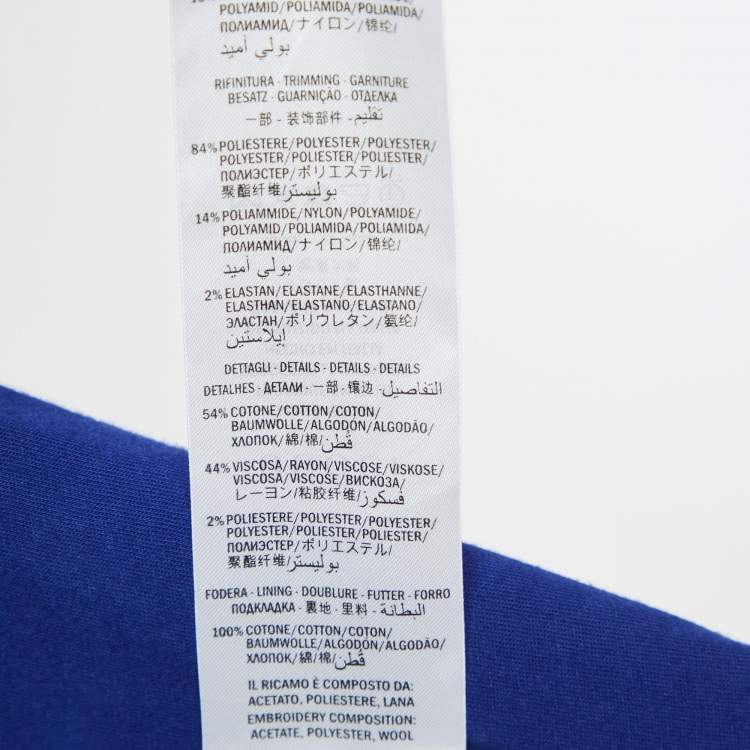 POLYAMID/POLIAMIDA/POLIAMIDA/
ПОЛИАМИД/ナイロン/锦纶/
بولي أميد
RIFINITURA - TRIMMING - GARNITURE
BESATZ - GUARNIÇÃO - ОТДЕЛКА
一部 - 装饰部件 - تقليم
84% POLIESTERE/POLYESTER/POLYESTER/
POLYESTER/POLIESTER/POLIESTER/
ПОЛИЭСТЕР/ポリエステル/
聚酯纤维/بوليستر
14% POLIAMMIDE/NYLON/POLYAMIDE/
POLYAMID/POLIAMIDA/POLIAMIDA/
ПОЛИАМИД/ナイロン/锦纶/
بولي أميد
2% ELASTAN/ELASTANE/ELASTHANNE/
ELASTHAN/ELASTANO/ELASTANO/
ЭЛАСТАН/ポリウレタン/氨纶/
إيلاستين
DETTAGLI - DETAILS - DETAILS - DETAILS
DETALHES - ДЕТАЛИ - 一部 - 镶边 - التفاصيل
54% COTONE/COTTON/COTON/
BAUMWOLLE/ALGODÓN/ALGODÃO/
ХЛОПОК/綿/棉/قُطن
44% VISCOSA/RAYON/VISCOSE/VISKOSE/
VISCOSA/VISCOSE/ВИСКОЗА/
レーヨン/粘胶纤维/فسكوز
2% POLIESTERE/POLYESTER/POLYESTER/
POLYESTER/POLIESTER/POLIESTER/
ПОЛИЭСТЕР/ポリエステル/
聚酯纤维/بوليستر
FODERA - LINING - DOUBLURE - FUTTER - FORRO
ПОДКЛАДКА - 裏地 - 里料 - البطانة
100% COTONE/COTTON/COTON/
BAUMWOLLE/ALGODÓN/ALGODÃO/
ХЛОПОК/綿/棉/قُطن
IL RICAMO È COMPOSTO DA:
ACETATO, POLIESTERE, LANA
EMBROIDERY COMPOSITION:
ACETATE, POLYESTER, WOOL